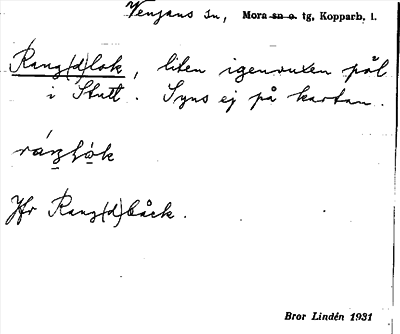 Venjans sn, Mora sn o. tg, Kopparb. l.
Rang(d)lok, liten igenvuxen pöl
i Stutt. Syns ej på kartan.
Jfr Rang(d)bäck.
Bror Lindén 1931